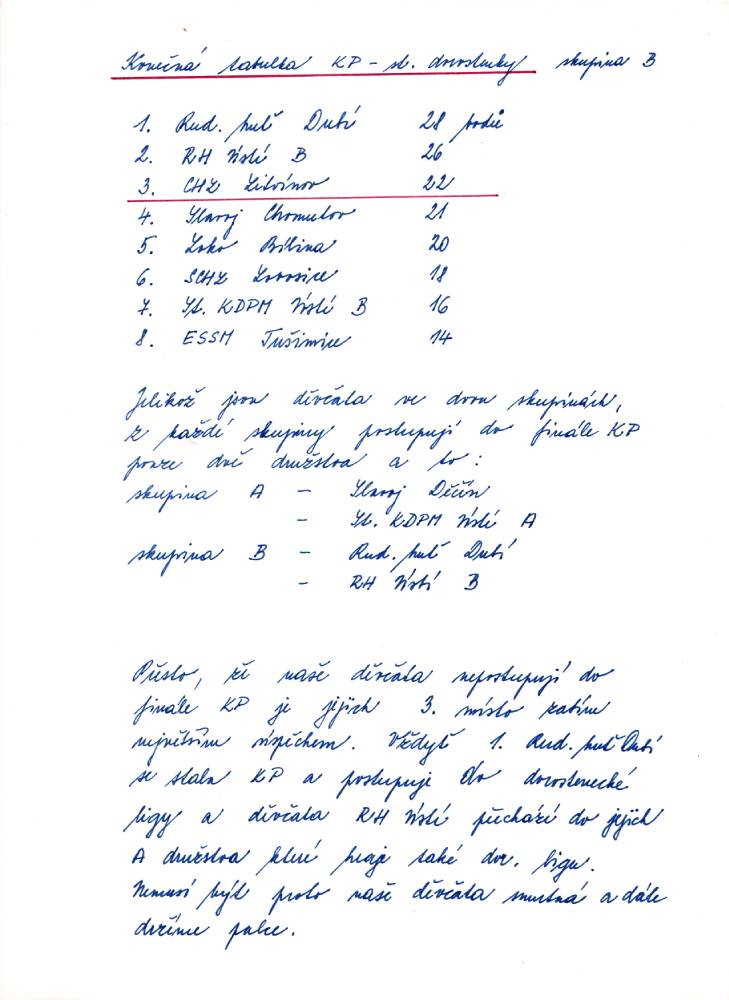 Konečná tabulka KP - st. dorostenky skupina B
1. Rud. huť Dubí 28 bodů
2. RH Ústí B 26
3. CHZ Litvínov 22
4. Slavoj Chomutov 21
5. Loko Bílina 20
6. SCHZ Lovosice 18
7. St. KDPM Ústí B 16
8. ESSM Tušimice 14
Jelikož jsou děvčata ve dvou skupinách,
z každé skupiny postupují do finále KP
pouze dvě družstva a to:
skupina A - Slavoj Děčín
- St. KDPM Ústí A
skupina B - Rud. huť Dubí
- RH Ústí B
Přesto, že naše děvčata nepostupují do
finále KP je jejich 3. místo zatím
největším úspěchem. Vždyť 1. Rud. huť Dubí
se stala KP a postupuje do dorostenecké
ligy a děvčata RH Ústí přechází do jejich
A družstva které hraje také dor. ligu.
Nemusí být proto naše děvčata smutná a dále
držíme palce.